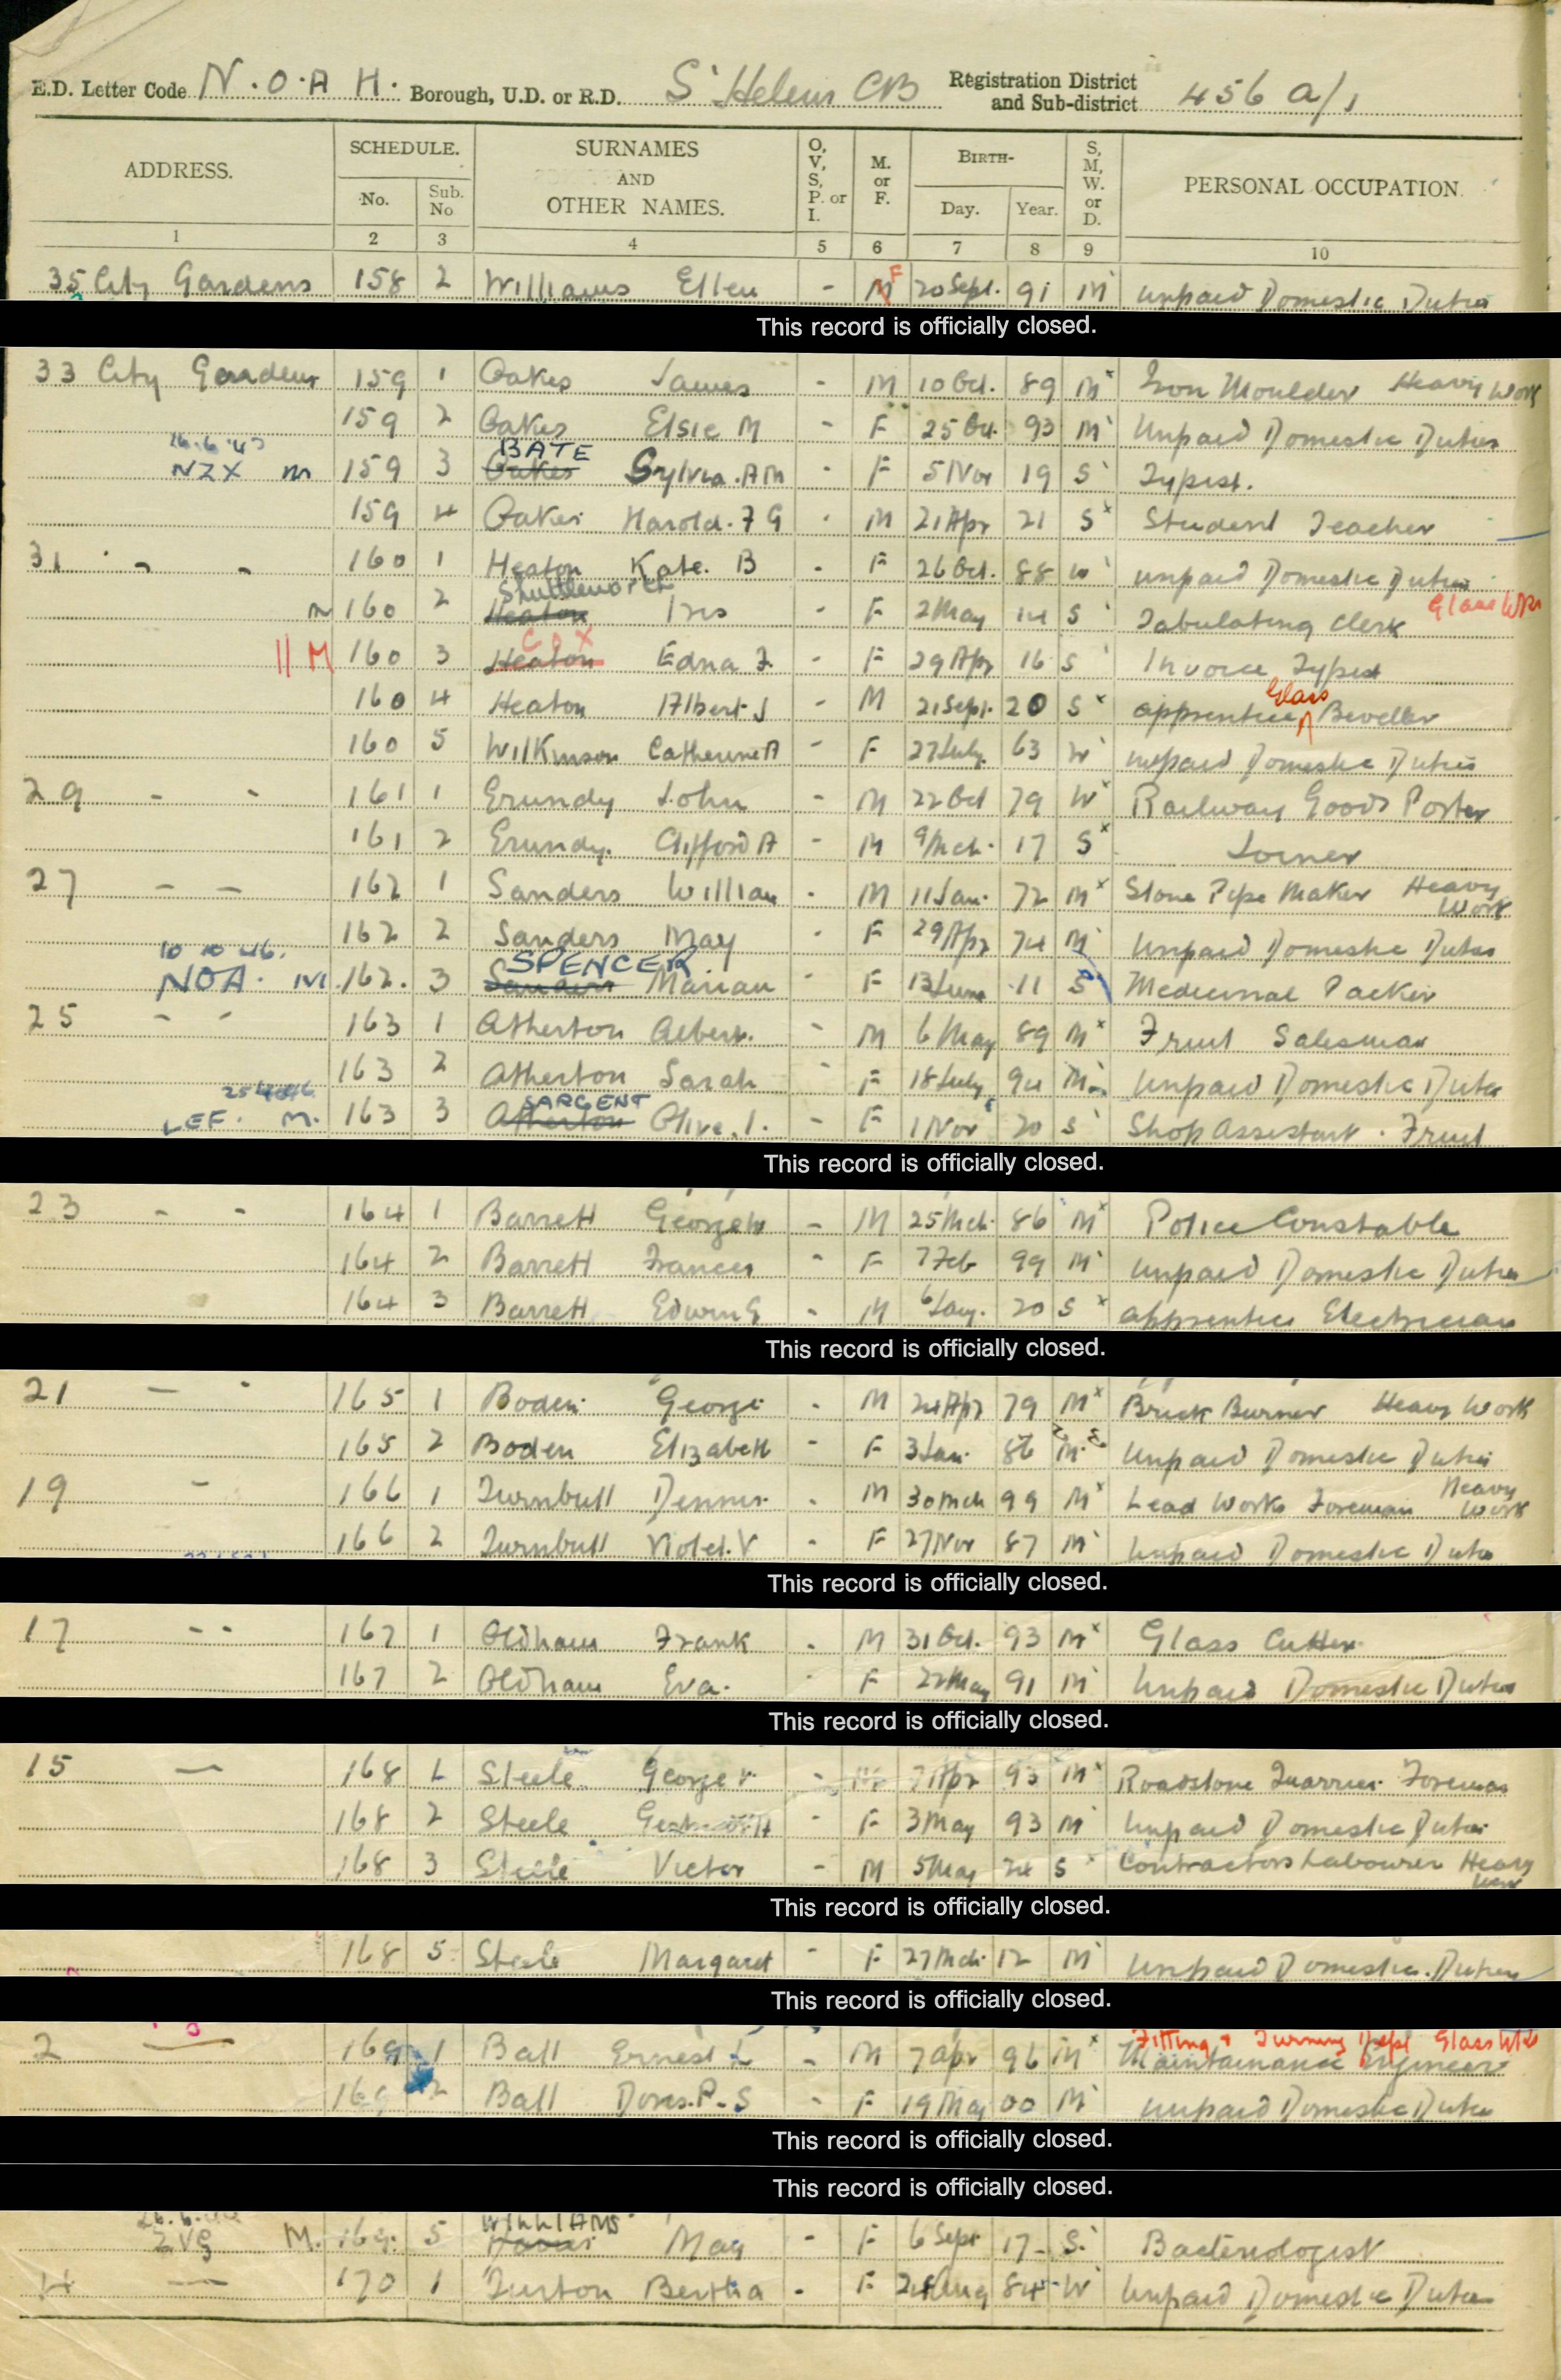 E.D. Letter Code N.O.A H. Borough, U.D. or R.D. St Helens CB Registration District and Sub-district 456 a/1
ADDRESS. SCHEDULE. No. Sub. No SURNAMES AND OTHER NAMES. O, V, S, P. or I. M. or F. BIRTH- Day. Year. S, M, W. or D. PERSONAL OCCUPATION.
1 2 3 4 5 6 7 8 9 10
35 City Gardens 158 2 Williams Ellen - M F 20 Sept. 91 M Unpaid Domestic Duties
This record is officially closed.
33 City Gardens 159 1 Oakes James - M 10 Oct. 89 M x Iron Moulder Heavy Work
159 2 Oakes Elsie M - F 25 Oct. 93 M Unpaid Domestic Duties
16.6.43 BATE
NZX M 159 3 Oakes Sylvia. A M - F 5 Nov 19 S Typist.
159 4 Oakes Harold. F G - M 21 Apr 21 S x Student Teacher
31 - - 160 1 Heaton Kate. B - F 26 Oct. 88 W Unpaid Domestic Duties
Shuttleworth
M 160 2 Heaton Iris - F 2 May 14 S Tabulating Clerk Glass Wks
COX
M 160 3 Heaton Edna F. - F 29 Apr 16 S Invoice Typist
160 4 Heaton Albert J - M 21 Sept. 20 S x apprentice Glass Beveller
160 5 Wilkinson Catherine A - F 27 July 63 W unpaid Domestic Duties
29 - - 161 1 Grundy John - M 22 Oct 79 W x Railway Goods Porter
161 2 Grundy. Clifford A - M 9 Mch. 17 S x Joiner
27 - - 162 1 Sanders William - M 11 Jan. 72 M x Stone Pipe Maker Heavy Work
162 2 Sanders May - F 29 Apr 74 M Unpaid Domestic Duties
10 10 46. SPENCER
NOA. M 162. 3 Sanders Marian - F 13 June 11 S Medicinal Packer
25 - - 163 1 Atherton Albert. - M 6 May 89 M x Fruit Salesman
163 2 Atherton Sarah - F 18 July 94 M Unpaid Domestic Duties
SARGENT
LEF. M. 163 3 Atherton Olive. I. - F 1 Nov 20 S Shop Assistant. Fruit
This record is officially closed.
23 - - 164 1 Barrett George W - M 25 Mch. 86 M x Police Constable
164 2 Barrett Frances - F 7 Feb 99 M Unpaid Domestic Duties
164 3 Barrett Edwin G - M 6 Jany. 20 S x apprentice Electrician
This record is officially closed.
21 - - 165 1 Boden George - M 24 Apr 79 M x Brick Burner Heavy Work
165 2 Boden Elizabeth - F 3 Jan. 86 M Unpaid Domestic Duties
19 - 166 1 Turnbull Dennis. - M 30 Mch 99 M x Lead Works Foreman Heavy Work
166 2 Turnbull Violet. V - F 27 Nov 87 M Unpaid Domestic Duties
This record is officially closed.
17 - - 167 1 Oldham Frank - M 31 Oct. 93 M x Glass Cutter.
167 2 Oldham Eva. - F 22 May 91 M Unpaid Domestic Duties
This record is officially closed.
15 - 168 1 Steele George - M 7 Apr 95 M x Roadstone Quarries Foreman
168 2 Steele - F 3 May 93 M Unpaid Domestic Duties
168 3 Steele Victor - M 5 May 24 S x Contractors Labourer Heavy Work
This record is officially closed.
168 5 Steele Margaret - F 27 Mch. 12 M Unpaid Domestic. Duties
This record is officially closed.
Fitting & Turning Dept Glass Wks
2 - 169 1 Ball Ernest L - M 7 Apr 96 M x Maintainance Engineer
169 2 Ball Doris. P. S - F 19 May 00 M unpaid Domestic Duties
This record is officially closed.
This record is officially closed.
WILLIAMS
ZVG M. 169. 5 May - F 6 Sept 17 S. Bacteriologist
4 - 170 1 Turton Bertha - F 24 Aug 84 W Unpaid Domestic Duties